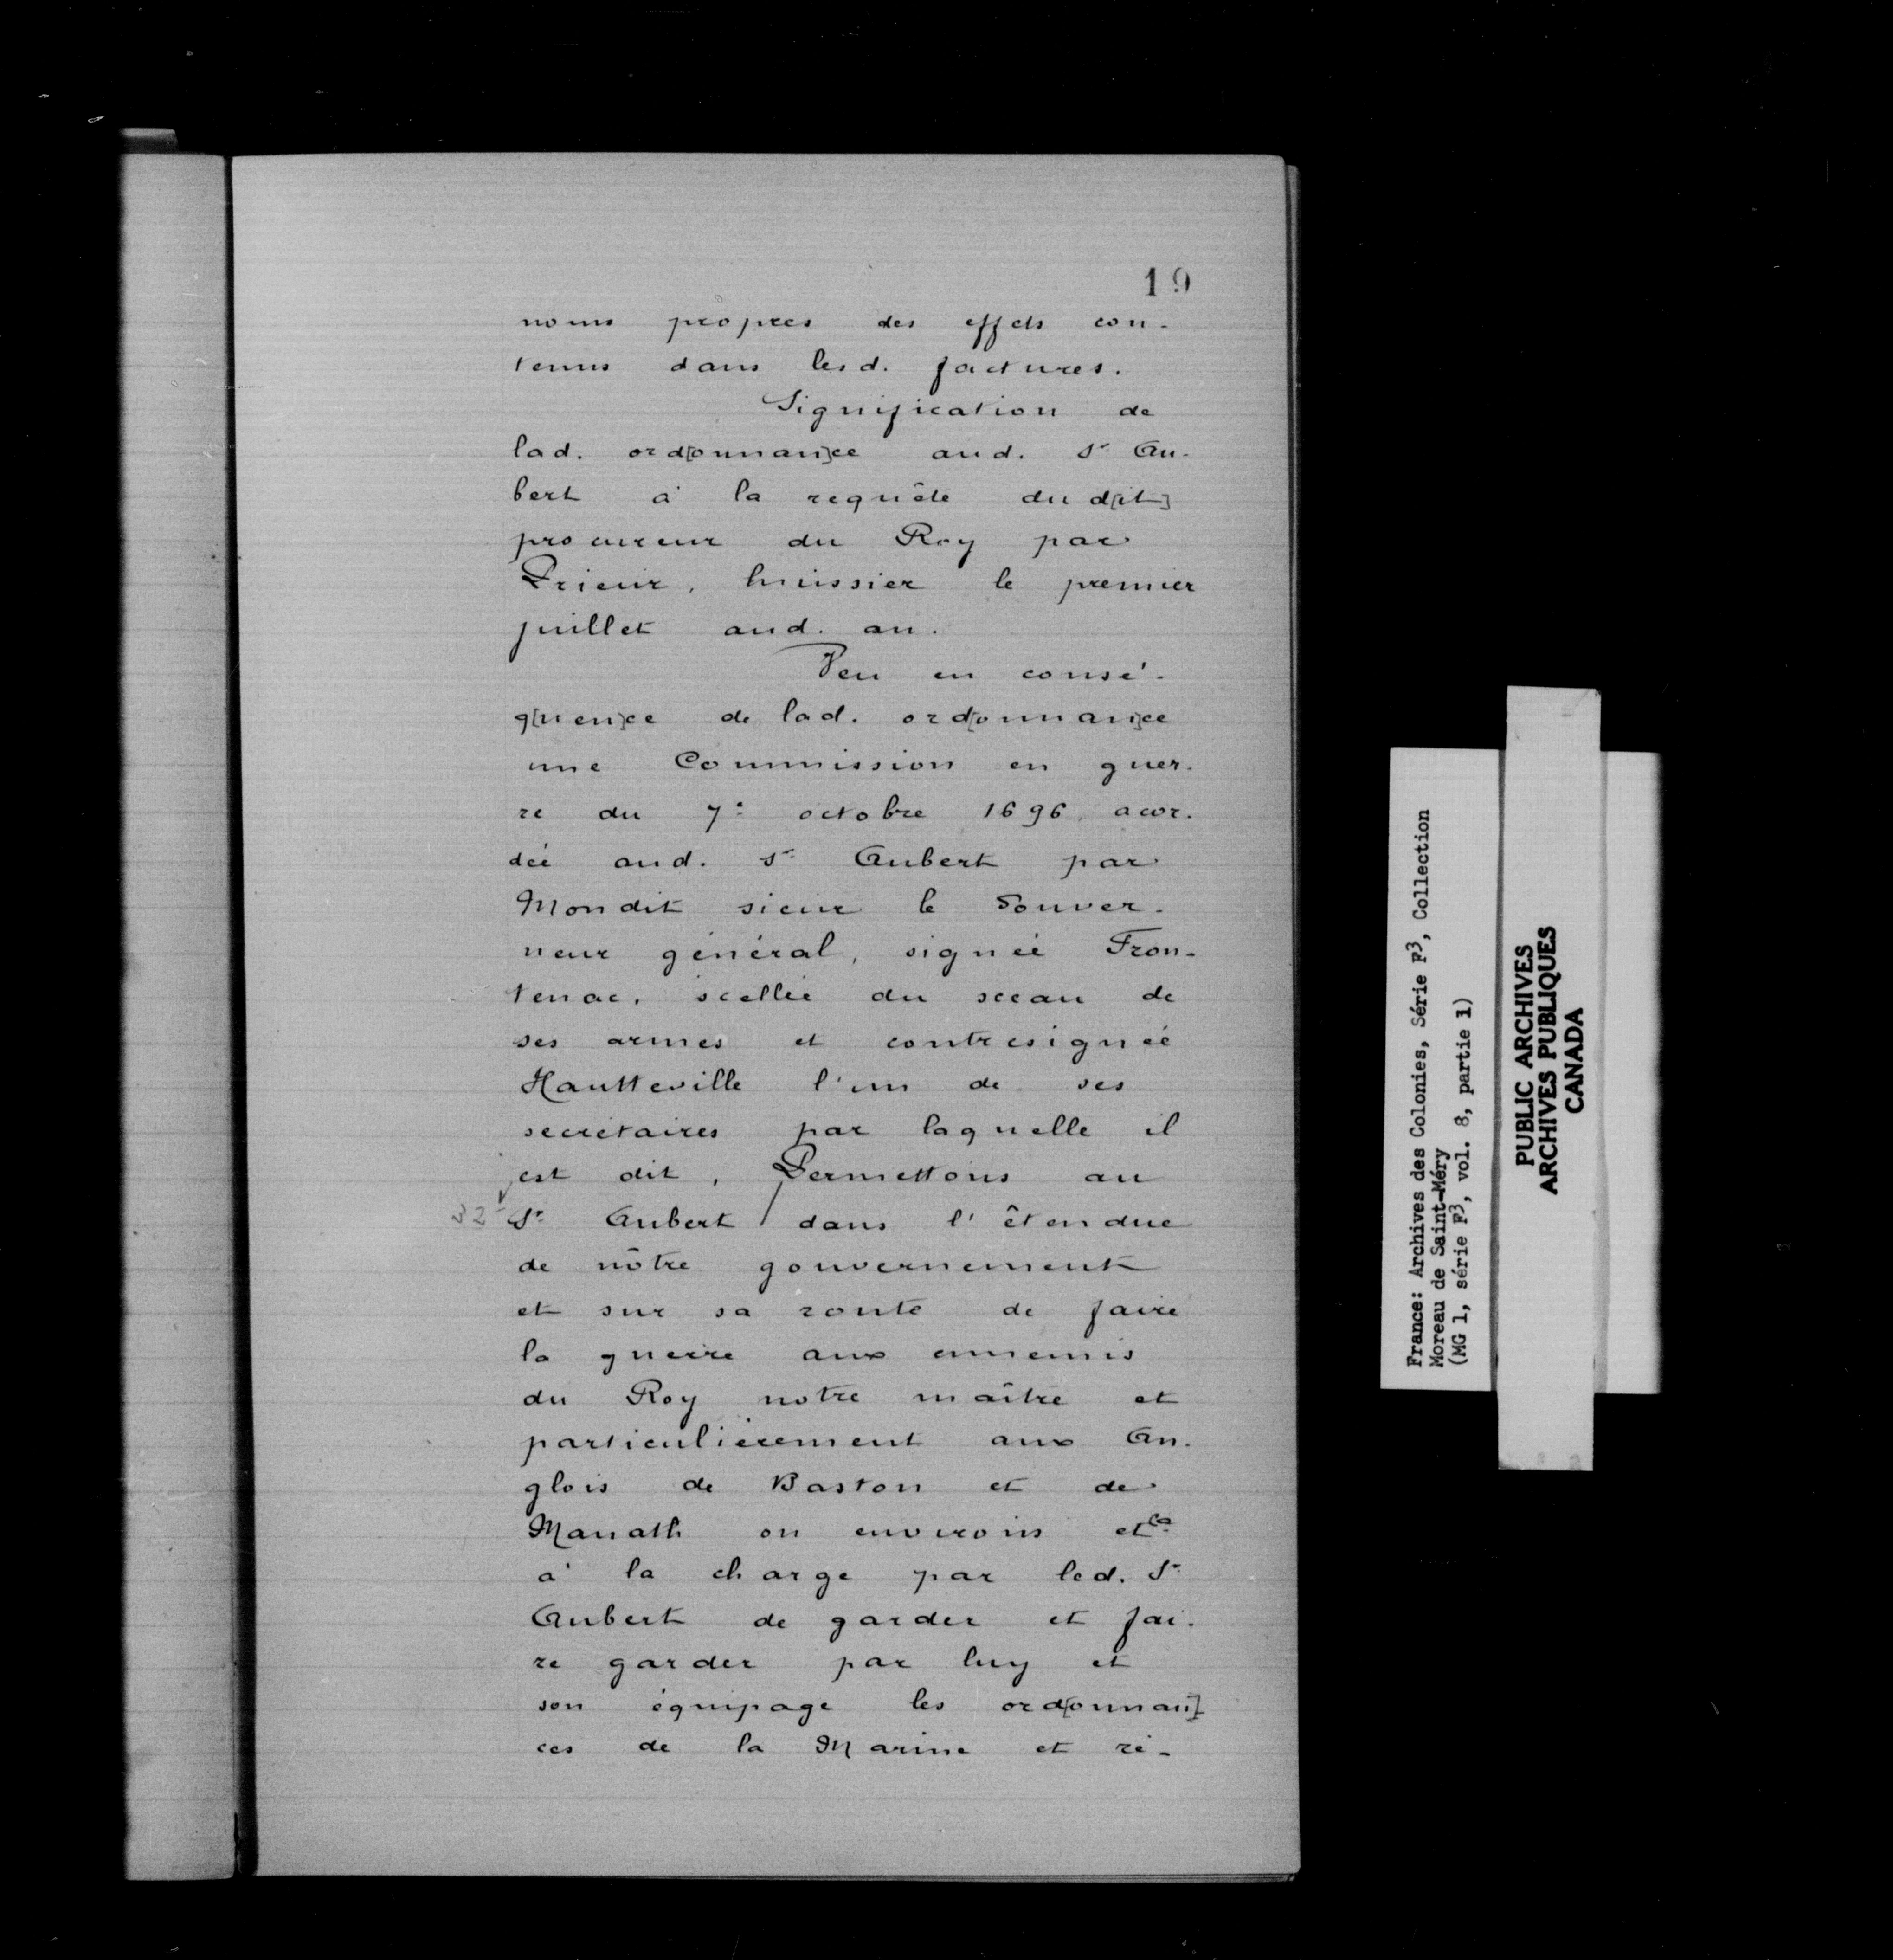 19
noms propres des effets con-
tenus dans lesd. factures.
Signification de
lad. ord[onnan]ce aud. Sr. Au-
bert à la requête du d[it]
procureur du Roy par
Prieur, huissier le premier
juillet aud. an.
Veu en consé-
q[uen]ce de lad. ord[onnan]ce
une Commission en guer-
re du 7e octobre 1696 acor-
dée aud. Sr. Aubert par
Mondit sieur le Gouver-
neur général, signée Fron-
tenac, scellée du sceau de
ses armes et contresignée
Hautteville l'un de ses
secrétaires par laquelle il
est dit, Permettons au
32 Sr. Aubert / dans l'étendue
de nôtre gouvernement
et sur sa route de faire
la guerre aux ennemis
du Roy notre maître et
particulièrement aux An-
glois de Baston et de
Manath ou environs etca
à la charge par led. Sr.
Aubert de garder et fai-
re garder par luy et
son équipage les ord[onnan]
ces de la Marine et ré-
France: Archives des Colonies, Série F3, Collection
Moreau de Saint-Méry
(MG 1, série F3, vol. 8, partie 1)
PUBLIC ARCHIVES
ARCHIVES PUBLIQUES
CANADA